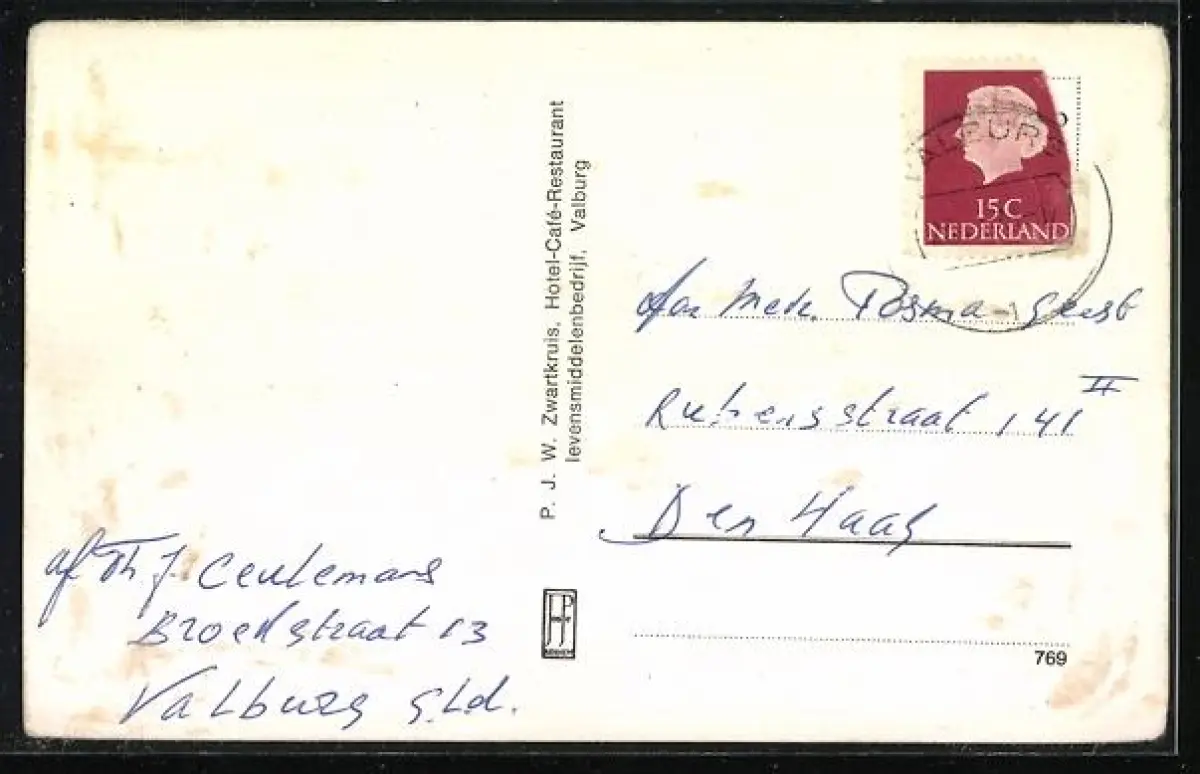 P. J. W. Zwartkruis, Hotel-Café-Restaurant
levensmiddelenbedrijf, Valburg
15 C
NEDERLAND
VALBURG
Aan Mevr. Posma-Geest
Rubensstraat 141 II
Den Haag
af Th J. Ceulemans
Broekstraat 13
Valburg Gld.
JP
769